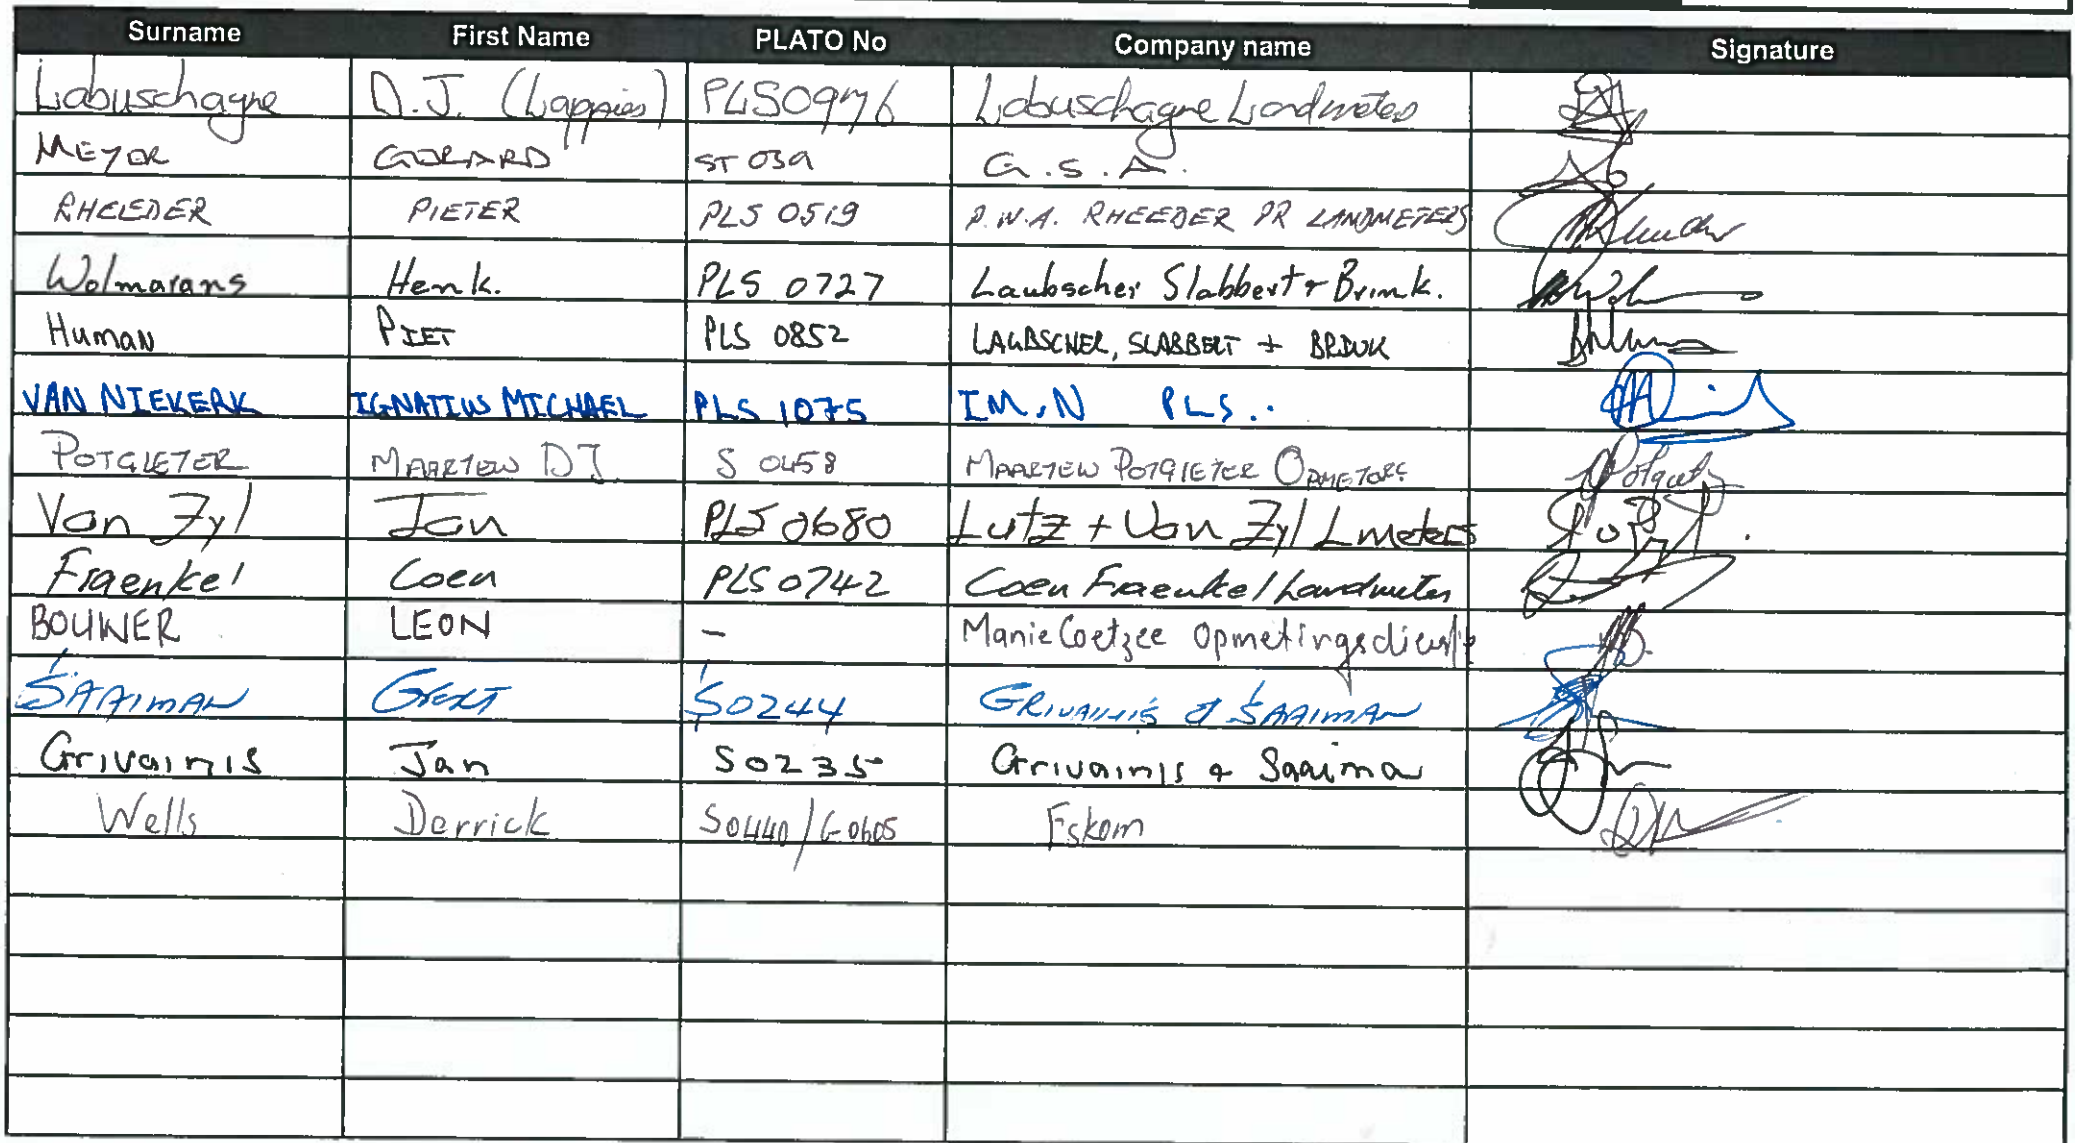 Surname First Name PLATO No Company name Signature
Labuschagne D.J. (Lappies) PLS0976 Labuschagne Landmeters
MEYER GERARD ST 039 G.S.A.
RHEEDER PIETER PLS 0519 P.W.A. RHEEDER PR LANDMETERS
Wolmarans Henk. PLS 0727 Laubscher Slabbert + Brink.
Human PIET PLS 0852 LAUBSCHER, SLABBERT + BRINK
VAN NIEKERK IGNATIUS MICHAEL PLS 1075 IM.N PLS..
POTGIETER MAARTEN DJ S 0458 MAARTEN POTGIETER OPMETERS
Van Zyl Jan PLS 0680 Lutz + Van Zyl Lmeters
Fraenkel Coen PLS 0742 Coen Fraenkel Landmeter
BOUWER LEON - Manie Coetzee Opmetingsdienste
SAAIMAN GERT S0244 GRIVAINIS & SAAIMAN
Grivainis Jan S0235 Grivainis & Saaima
Wells Derrick S0440/G0605 Eskom